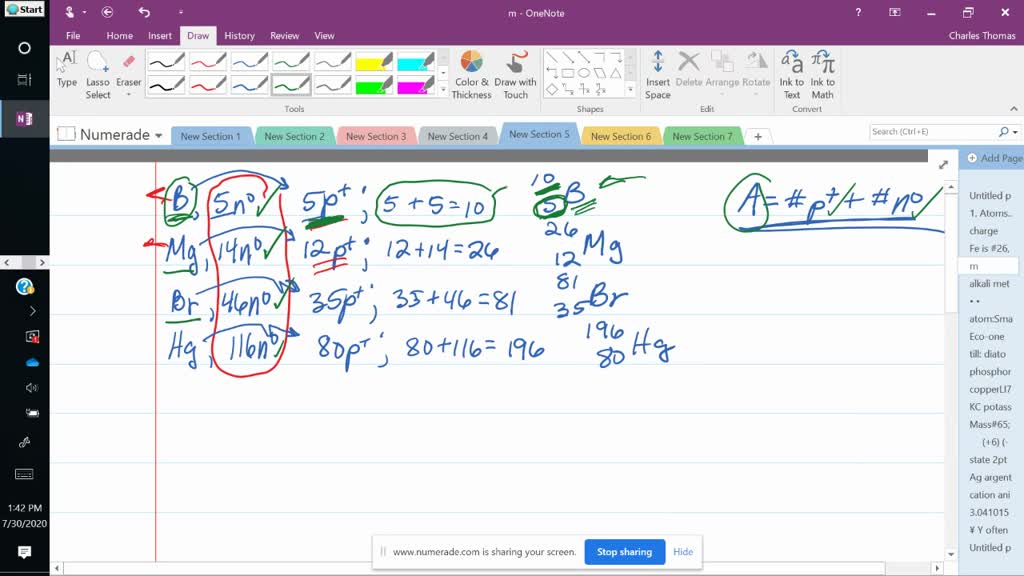 Start
m - OneNote
?
File Home Insert Draw History Review View
Charles Thomas
Type
Lasso Select
Eraser
Color & Thickness
Draw with Touch
Insert Space
Delete
Arrange
Rotate
Ink to Text
Ink to Math
Tools
Shapes
Edit
Convert
Numerade
New Section 1
New Section 2
New Section 3
New Section 4
New Section 5
New Section 6
New Section 7
+
Search (Ctrl+E)
Add Page
B, 5n⁰ 5p⁺; 5+5=10 ¹⁰₅B
A = #p⁺ + #n⁰
Mg, 14n⁰ 12p⁺; 12+14=26 ²⁶₁₂Mg
Br, 46n⁰ 35p⁺; 35+46=81 ⁸¹₃₅Br
Hg, 116n⁰ 80p⁺; 80+116=196 ¹⁹⁶₈₀Hg
Untitled p
1. Atoms..
charge
Fe is #26,
m
alkali met
• •
atom:Sma
Eco-one
till: diato
phosphor
copperLI7
KC potass
Mass#65;
(+6) (-
state 2pt
Ag argent
cation ani
3.041015
¥ Y often
Untitled p
1:42 PM
7/30/2020
www.numerade.com is sharing your screen.
Stop sharing
Hide